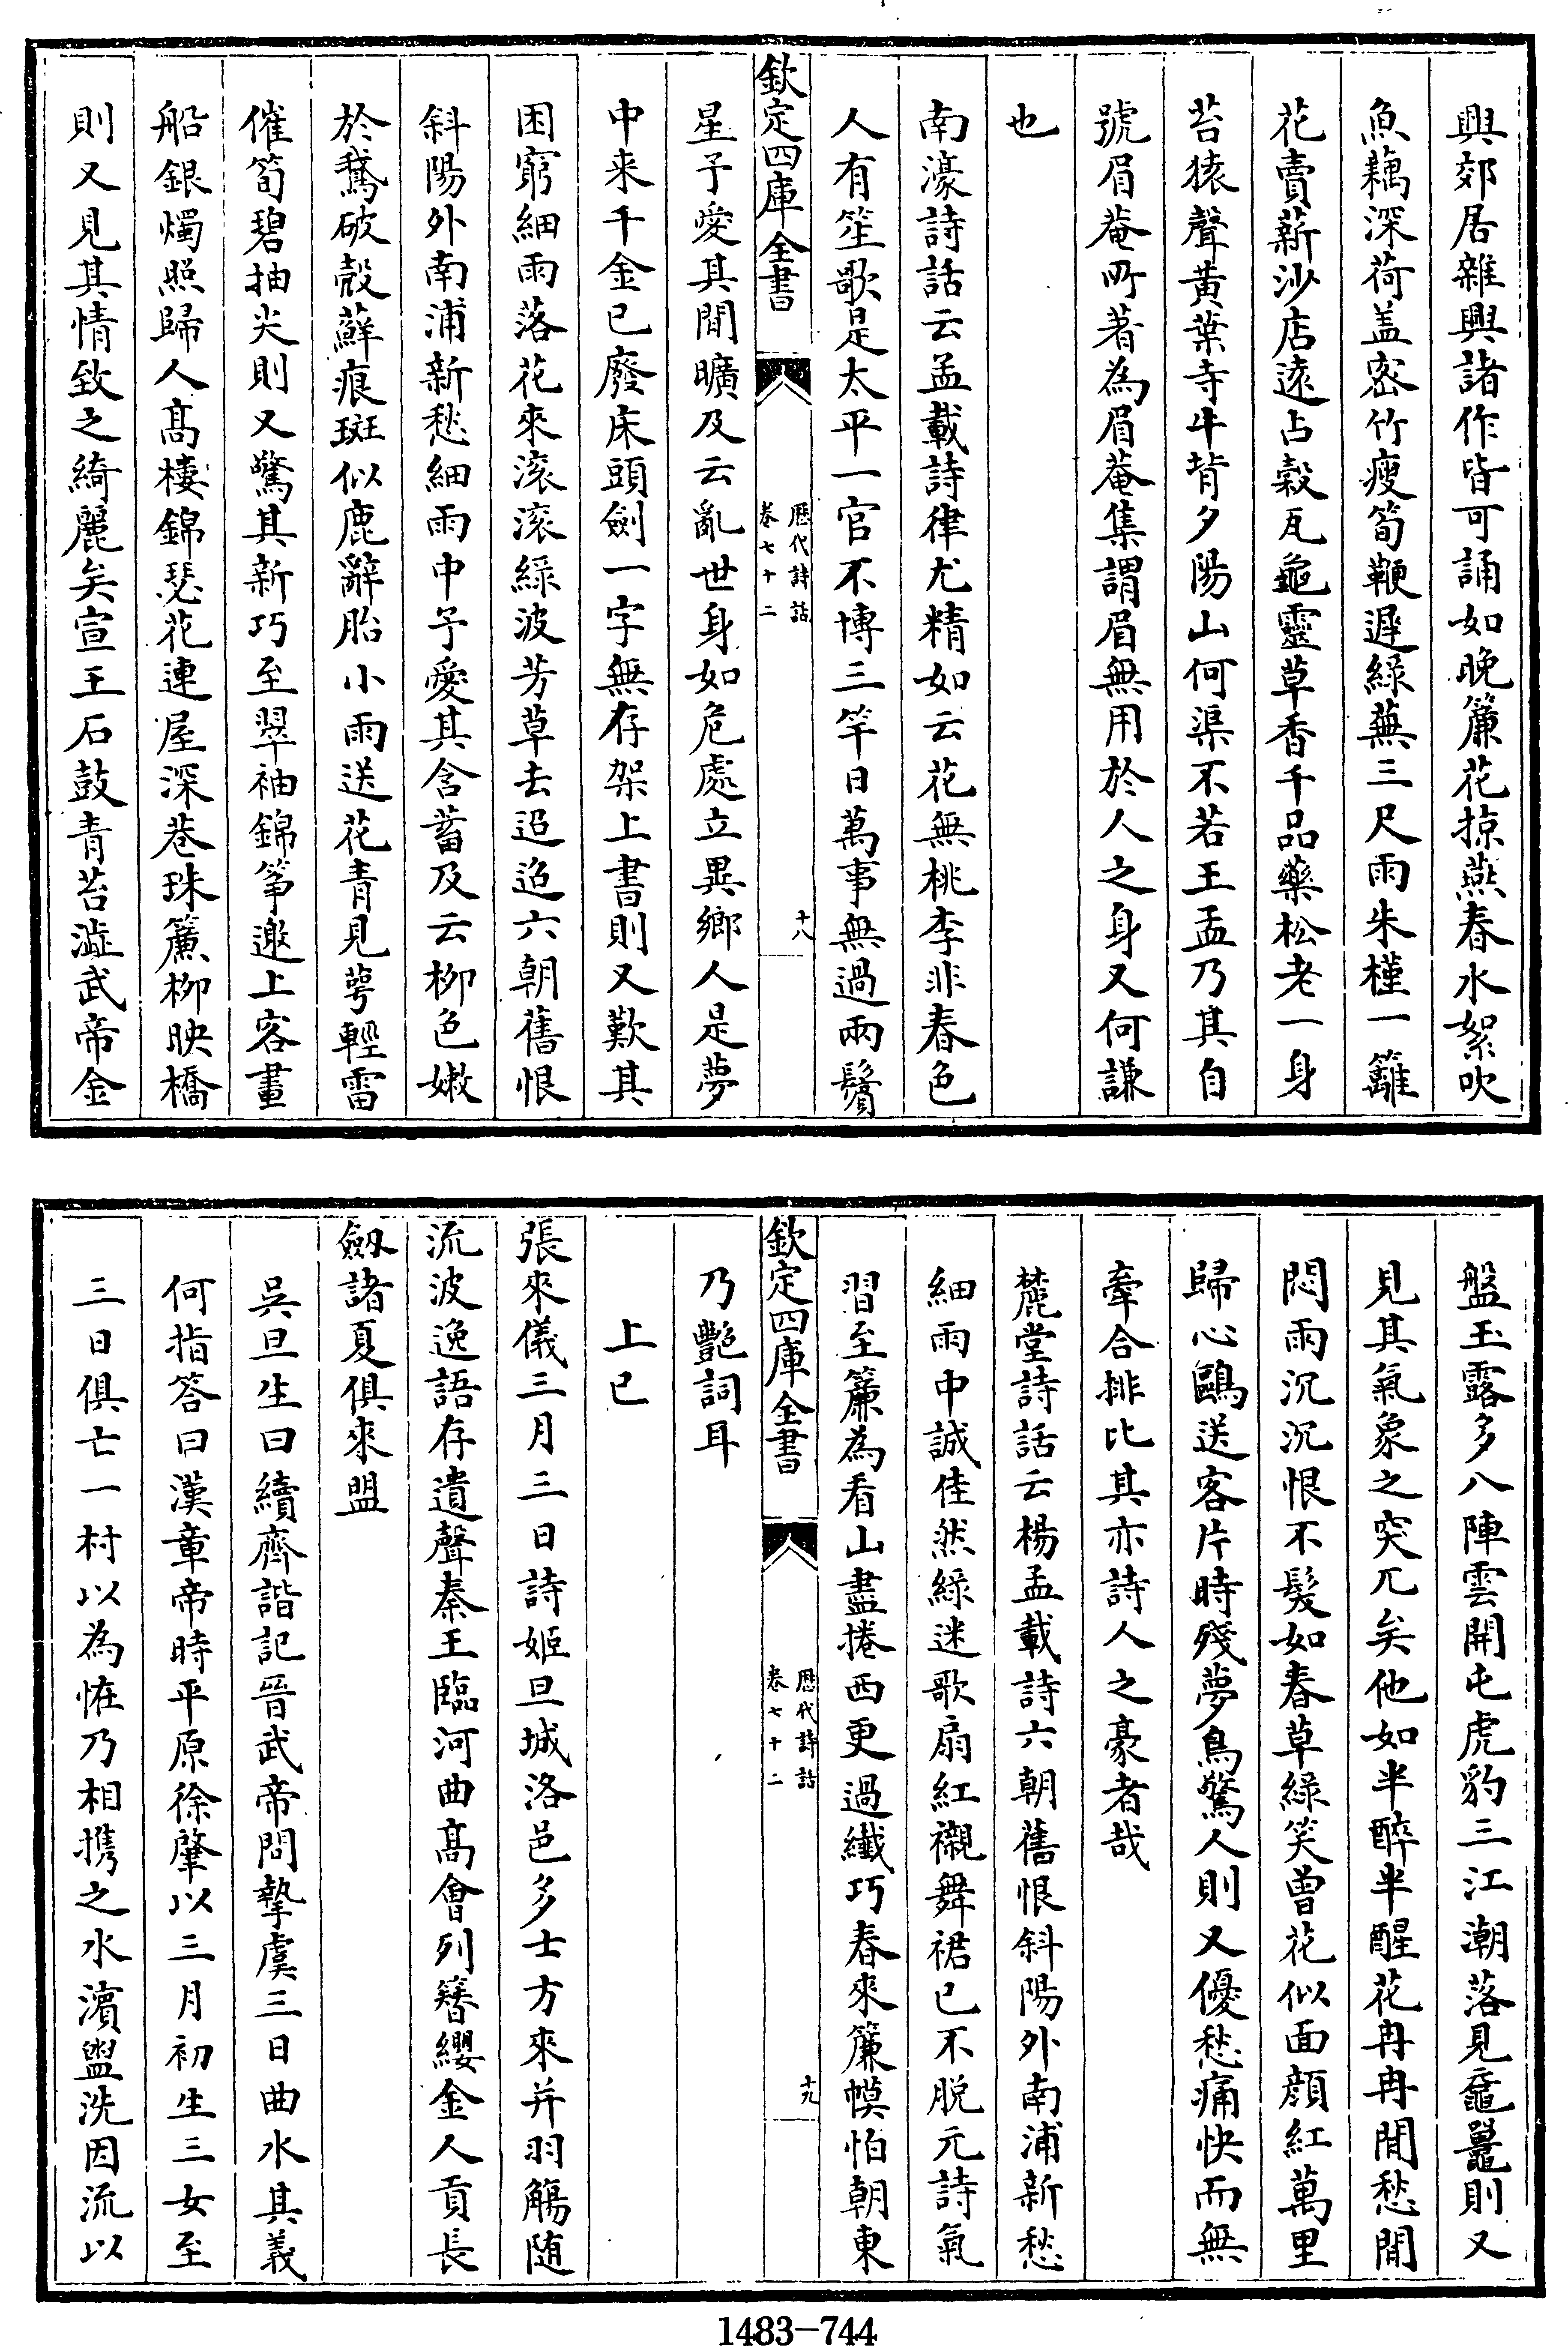 興郊居雜興諸作皆可誦如晚簾花掠燕春水絮吹
魚藕深荷盖密竹瘦筍鞭遲綠蕪三尺雨朱槿一籬
花賣薪沙店遠占穀瓦龜靈草香千品藥松老一身
苔猿聲黃葉寺牛背夕陽山何渠不若王孟乃其自
號眉菴所著為眉菴集謂眉無用於人之身又何謙
也
南濠詩話云孟載詩律尤精如云花無桃李非春色
人有笙歌是太平一官不博三竿日萬事無過兩鬢
欽定四庫全書
歷代詩話
卷七十二
十八
星予愛其閒曠及云亂世身如危處立異鄉人是夢
中来千金已廢床頭劍一字無存架上書則又歎其
困窮細雨落花來滚滚綠波芳草去迢迢六朝舊恨
斜陽外南浦新愁細雨中予愛其含蓄及云柳色嫩
於鵞破殼蘚痕斑似鹿辭胎小雨送花青見萼輕雷
催筍碧抽尖則又驚其新巧至翠袖錦筝邀上客畫
船銀燭照歸人髙棲錦瑟花連屋深巷珠簾柳映橋
則又見其情致之綺麗矣宣王石鼓青苔澁武帝金
盤玉露多八陣雲開屯虎豹三江潮落見黿鼉則又
見其氣象之突兀矣他如半醉半醒花冉冉閒愁閒
悶雨沉沉恨不髮如春草綠笑曾花似面顔紅萬里
歸心鷗送客片時殘夢鳥驚人則又優愁痛快而無
牽合排比其亦詩人之豪者哉
麓堂詩話云楊孟載詩六朝舊恨斜陽外南浦新愁
細雨中誠佳然綠迷歌扇紅襯舞裙已不脱元詩氣
習至簾為看山盡捲西更過纖巧春來簾幙怕朝東
欽定四庫全書
歷代詩話
卷七十二
十九
乃艷詞耳
上已
張來儀三月三日詩姬旦城洛邑多士方來并羽觴随
流波逸語存遺聲秦王臨河曲髙會列簪纓金人貢長
劔諸夏俱來盟
吳旦生曰續齊諧記晉武帝問摯虞三日曲水其義
何指答曰漢章帝時平原徐肇以三月初生三女至
三日俱亡一村以為恠乃相攜之水濱盥洗因流以
1483-744